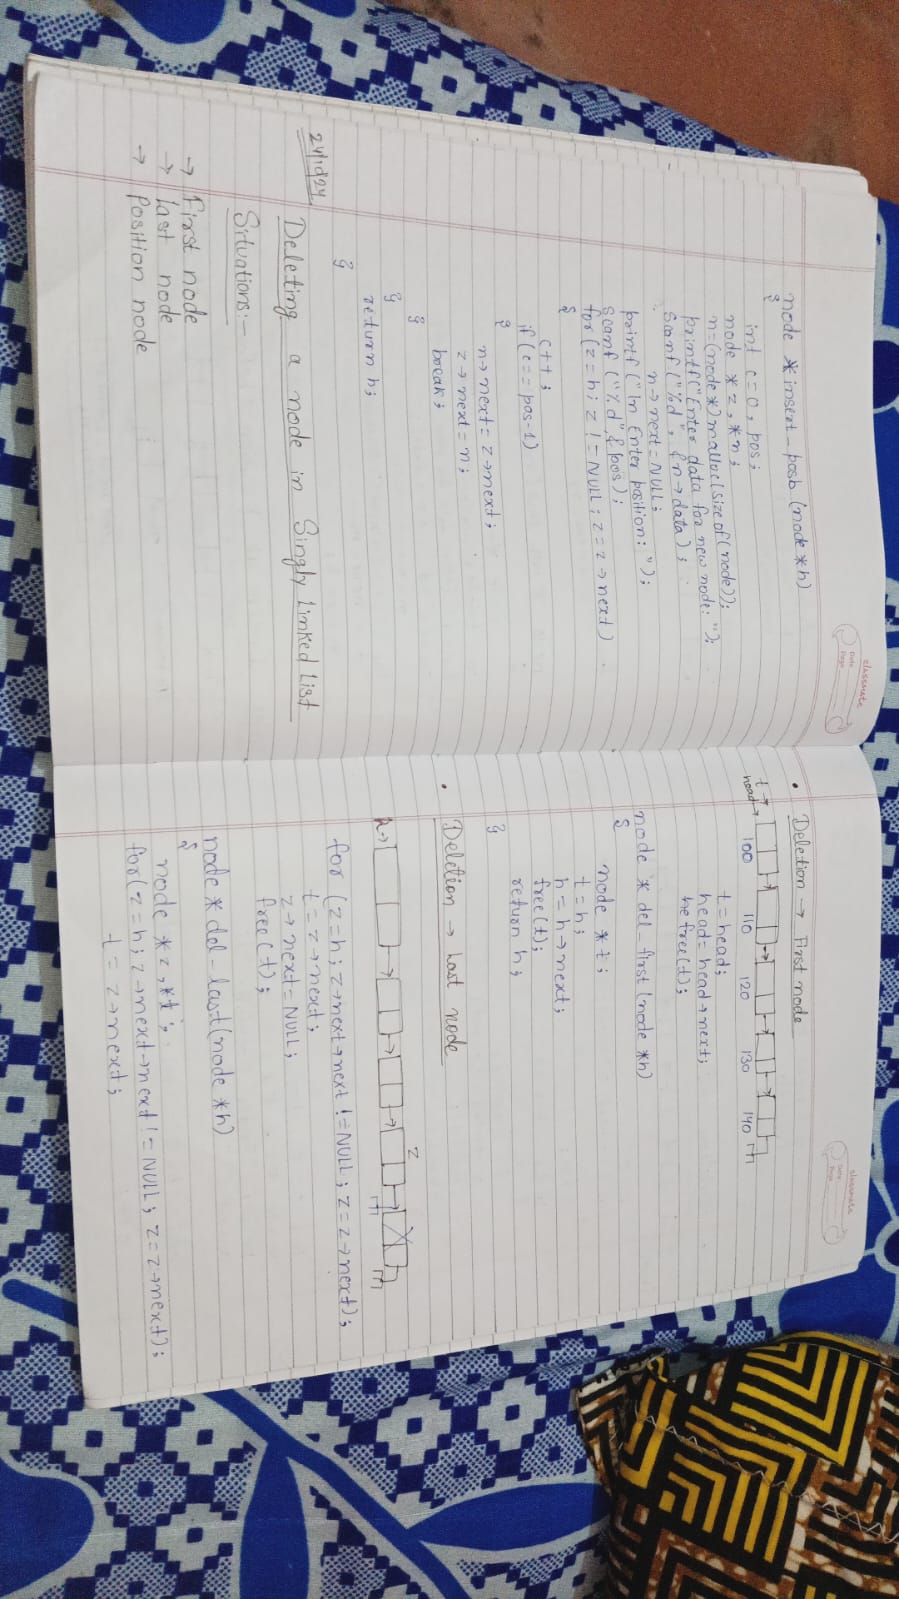 classmate
Date
Page
node *insert_posb (node *h)
{
int c=0, pos;
node *z, *n;
n=(node*)malloc(sizeof(node));
printf("Enter data for new node: ");
scanf ("%d", &n→data);
n→next=NULL;
printf ("\n Enter position: ");
scanf ("%d",&pos);
for (z=h; z!=NULL; z=z→next)
{
c++;
if (c== pos-1)
{
n→next=z→next;
z→next=n;
break;
}
}
return h;
}
24/10/24
Deleting a node in Singly Linked List
Situations:-
→ First node
→ Last node
→ Position node
classmate
Date
Page
• Deletion → First node
t→
head→
100 110 120 130 140
t=head;
head=head→next;
he free(t);
node * del-first (node *h)
{
node *t;
t=h;
h=h→next;
free(t);
return h;
}
• Deletion → Last node
z
h→
for (z=h; z→next→next !=NULL; z=z→next);
t=z→next;
z→next=NULL;
free(t);
node * del-last(node *h)
{
node *z, *t;
for(z=h; z→next→next!=NULL; z=z→next);
t=z→next;